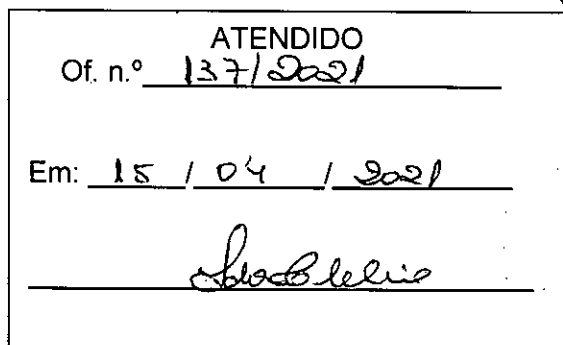 ATENDIDO
Of. n.º 137/2021
Em: 15 / 04 / 2021